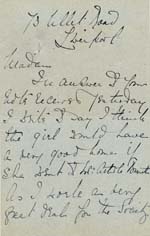 73 Road
Liverpool
Madam
In answer to your
note received yesterday
I write to say I think
the girl would have
a very good home if
she went to
As I work a very
great deal for the Society